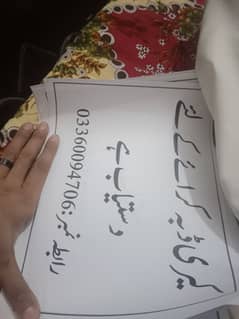 کیری ڈبہ کرائے کے لئے
دستیاب ہے
رابطہ نمبر:03360094706